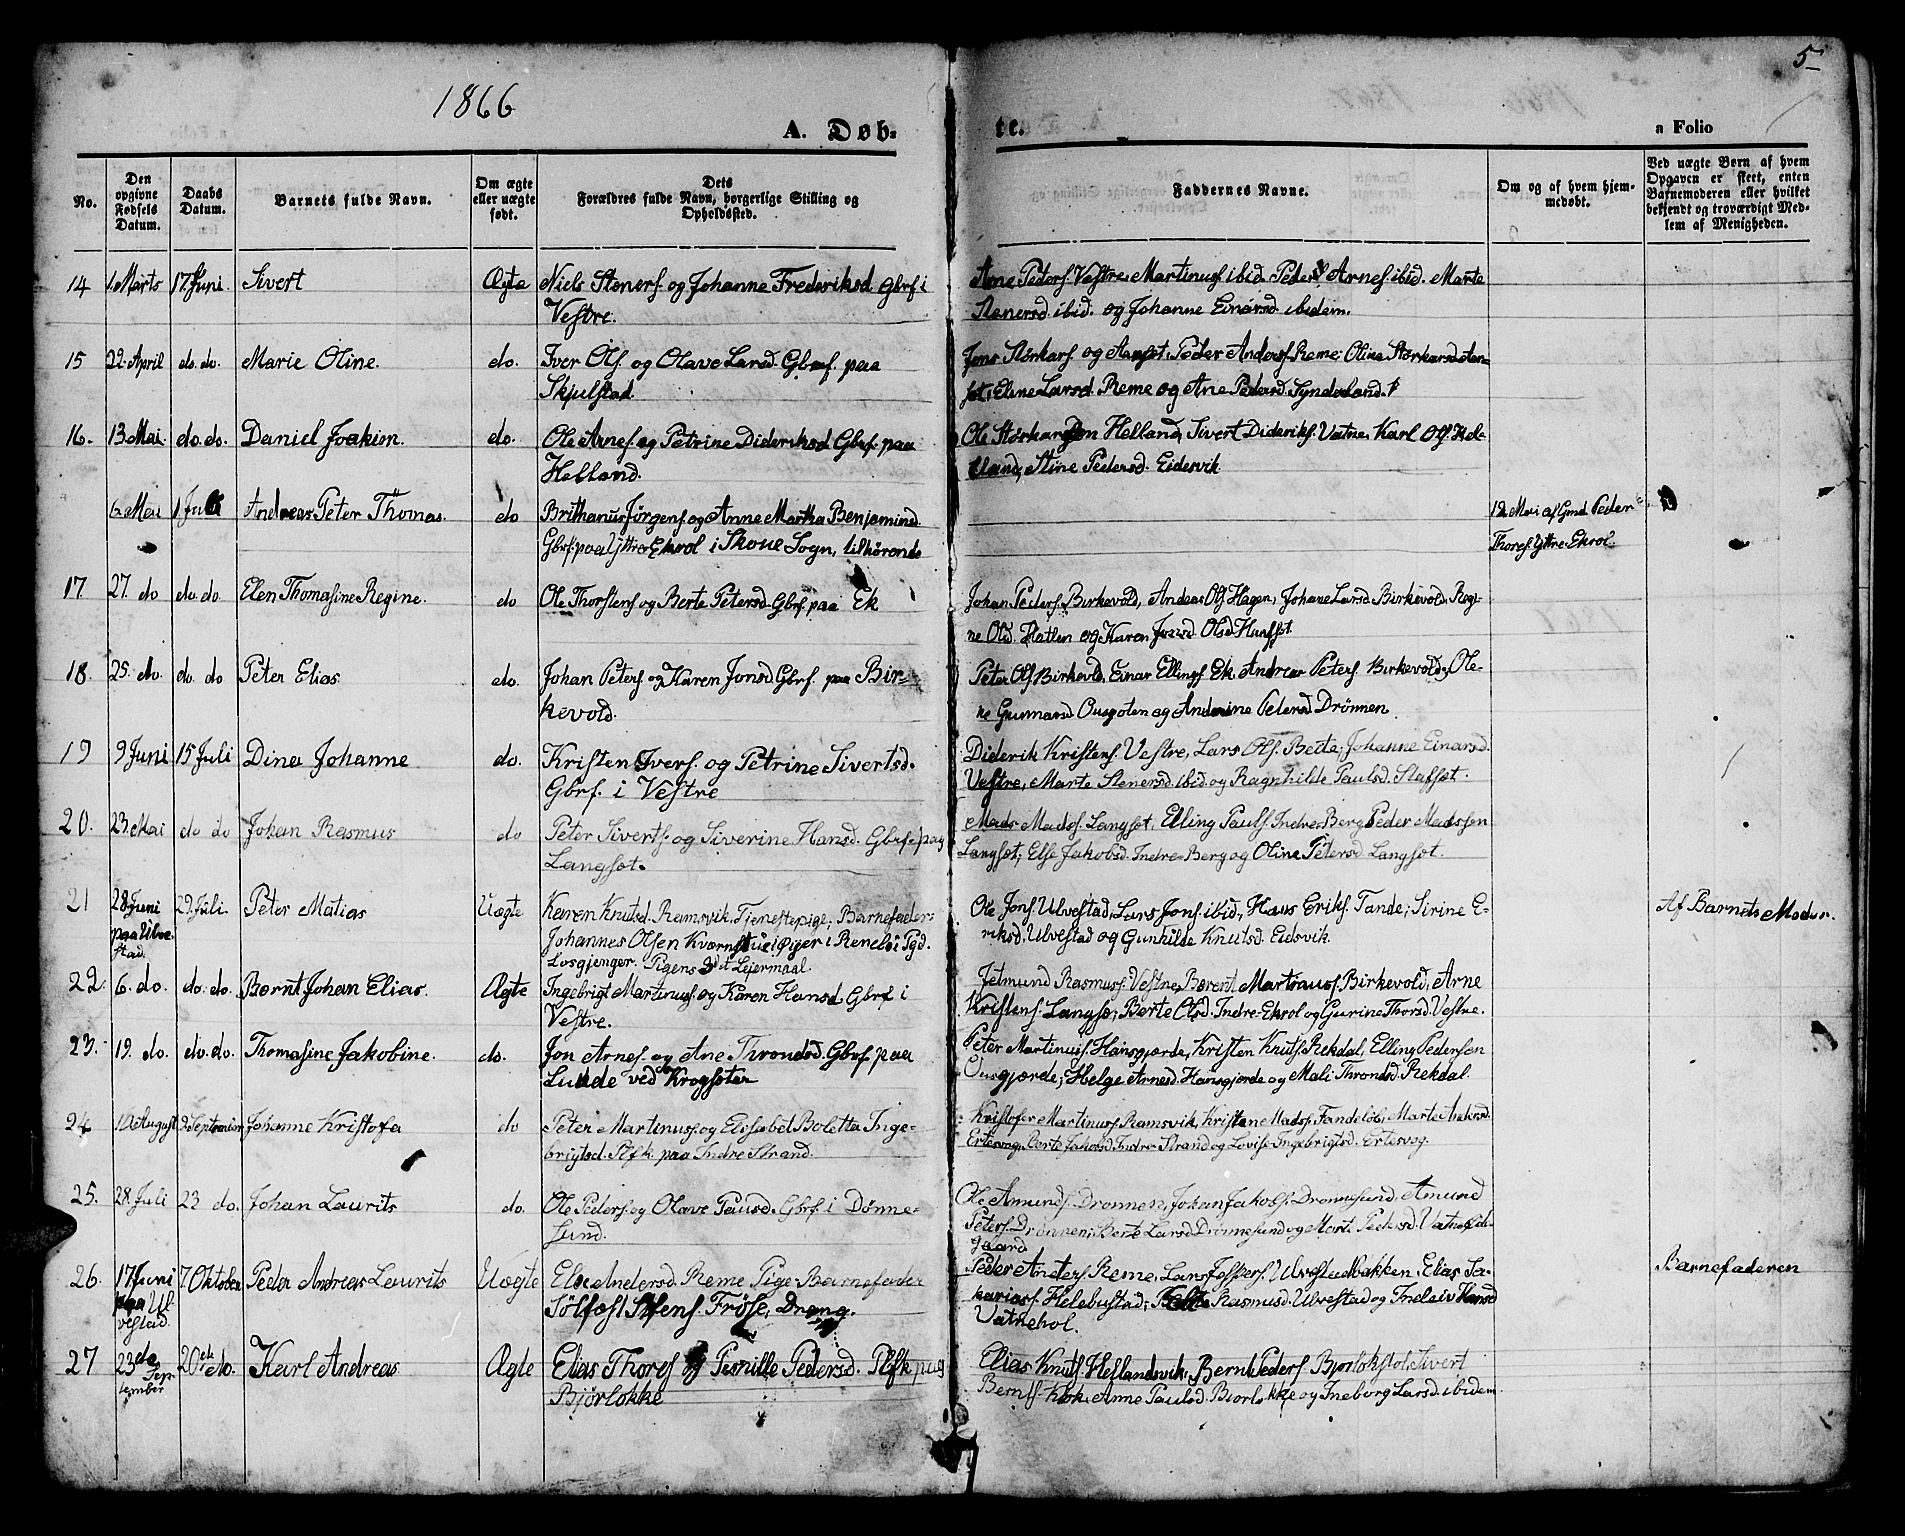 5
1866
A. Døb-
te.
a Folio
No.
Den opgivne Fødsels Datum.
Daabs Datum.
Barnets fulde Navn.
Om ægte eller uægte født.
Dets Forældres fulde Navn, borgerlige Stilling og Opholdssted.
Faddernes Navne.
Om og af hvem hjemmedøbt.
Ved uægte Børn af hvem Opgaven er skeet, enten Barnemoderen eller hvilket bekjendt og troværdigt Medlem af Menigheden.
14 1. Marts 17. Juni. Sivert Ægte Niels Steners. og Johanne Frederiksd. Gbrf. i
Vestre.
Arne Peders. Vestre, Martinus ibid. Peder Arnes. ibid. Marte
Stenersd. ibid. og Johanne Einarsd. ibidem.
15 22. April do. do. Marie Oline. do. Iver Ols. og Olave Larsd. Gbrf. paa
Skjulstad.
Jons Størkars. og Peder Anders. Reme; Oline Størkarsd.
Eline Larsd. Reme og Ane Pedersd. Synderland.
16. 13. Mai. do. do. Daniel Joakim. do. Ole Arnes. og Petrine Dideriksd. Gbrf. paa
Helland.
Ole Helland, Sivert Dideriks. Vatne, Karl Ols. Hel-
land, Stine Pedersd. Eidesvik.
6. Mai 1 Andreas Peter Thomas. do Brithanus Jørgens. og Anne Martha Benjamind.
Gbrf. paa Yttre Ekrol i Skoue Sogn, tilhørende
12 Mai af Gmd. Peder
Thores. Yttre-Ekrol.
17 27. do do. do Elen Thomasine Regine. do Ole Thorstens. og Berte Petersd. Gbrf. paa Ek
Johan Peders. Birkevold, Andeas Ols. Hagen, Johane Larsd. Birkevold. Regi-
ne Old. Hatlen og Karen
18. 25. do. do. do Peter Elias do. Johan Peters. og Karen Jonsd. Gbrf. paa Bir-
kevold.
Peter Ols. Birkevold, Einar Ellings. Ek, Andreas Peters. Birkevold, Ole-
ne Gunnarsd. og Andrine Petersd. Drönnen.
19 9 Juni 15 Juli Dina Johanne do. Kristen Ivers. og Petrine Sivertsd.
Gbrf. i Vestre
Diderik Kristens. Vestre, Lars Ols. Beite, Johanne Einarsd.
Vestre, Marte Stenersd. ibid. og Ragnhilde Paulsd. Slafset.
20. 23. Mai do do Johan Rasmus do Peter Siverts. og Siverine Hansd. Gbrf. paa
Langset.
Mads Mads. Langset, Elling Pauls. Indre-Berg, Peder Madssen
Langset, Else Jakobsd. Indre-Berg og Oline Petersd. Langset.
21 28. Juni paa Ulve-stad. 29. Juli. Peter Matias Uægte Karen Knutsd. Ramsvik, Tjenestepige; Barnefader:
Johannes Olsen i Renebö Pgd.
Losgjenger. Pigens 3dt Leiermaal.
Ole Jons. Ulvestad, Lars Jons. ibid, Hans Eriks. Tande; Sirine E-
riksd. Ulvestad og Gunhilde Knutsd. Eidsvik.
Af Barnets Moder.
22. 6. do. do. do. Bernt Johan Elias. Ægte Ingebrigt Martinus. og Karen Hansd. Gbrf. i
Vestre.
Jetmund Rasmus. Vestre, Berent Birkevold, Arne
Kristens. Langsæ; Berte Olsd. Indre-Ekrol og Gurine Thorsd. Vestre.
23. 19. do. do. do. Thomasine Jakobine. do. Jon Arnes. og Ane Throndsd. Gbrf. paa
Lunde ved Krogsæter
Peter Martinus. Hansgjerde, Kristen Knuts. Rekdal, Elling Pedersen
Ousgjærde; Helge Arnesd. Hansgjerde og Mali Throndsd. Rekdal.
24 10 August 2 September Johanne Kristofa do Peter Martinus. og Elisabet Boletta Inge-
brigtsd. Plfk. paa Indre Strand.
Kristofer Martinus. Ramsvik, Kristene Mads. Marte Andersd.
Ertesvog, Berte Jakobsd. Indre-Strand og Lovise Ingebrigtsd. Ertesvog.
25. 28. Juli 23 do. Johan Laurits do. Ole Peders. og Olave Pausd. Gbrf. i Dönne-
sund.
Ole Amunds. Dronnen, Johan Jakobs. Dronnesund, Amund
Peters. Drönnen; Berte Larsd. Drönnesund og Marte Pedersd. Vatne Eid-
gaard
26. 17 Juni paa Ul-vestad. 7 Oktober Peder Andreas Laurits Uægte Else Andersd. Reme Pige. Barnefader
Sölfæst Stens. Fröse, Dreng.
Peder Anders. Reme, Lars Jespers. Ulvestadbakken, Elias Sa-
karias. Helebustad; Rasmusd. Ulvestad og Hansd
Vatnehol.
Barnefaderen
27 23de September 20de do. Karl Andreas Ægte Elias Thores. og Pernille Pedersd. Plfk. paa
Bjørløkke
Elias Knuts. Hellandsvik, Bernt Peders. Sivert
Bernts. Anne Paulsd. Biorløkke og Ingeborg Larsd. ibidem